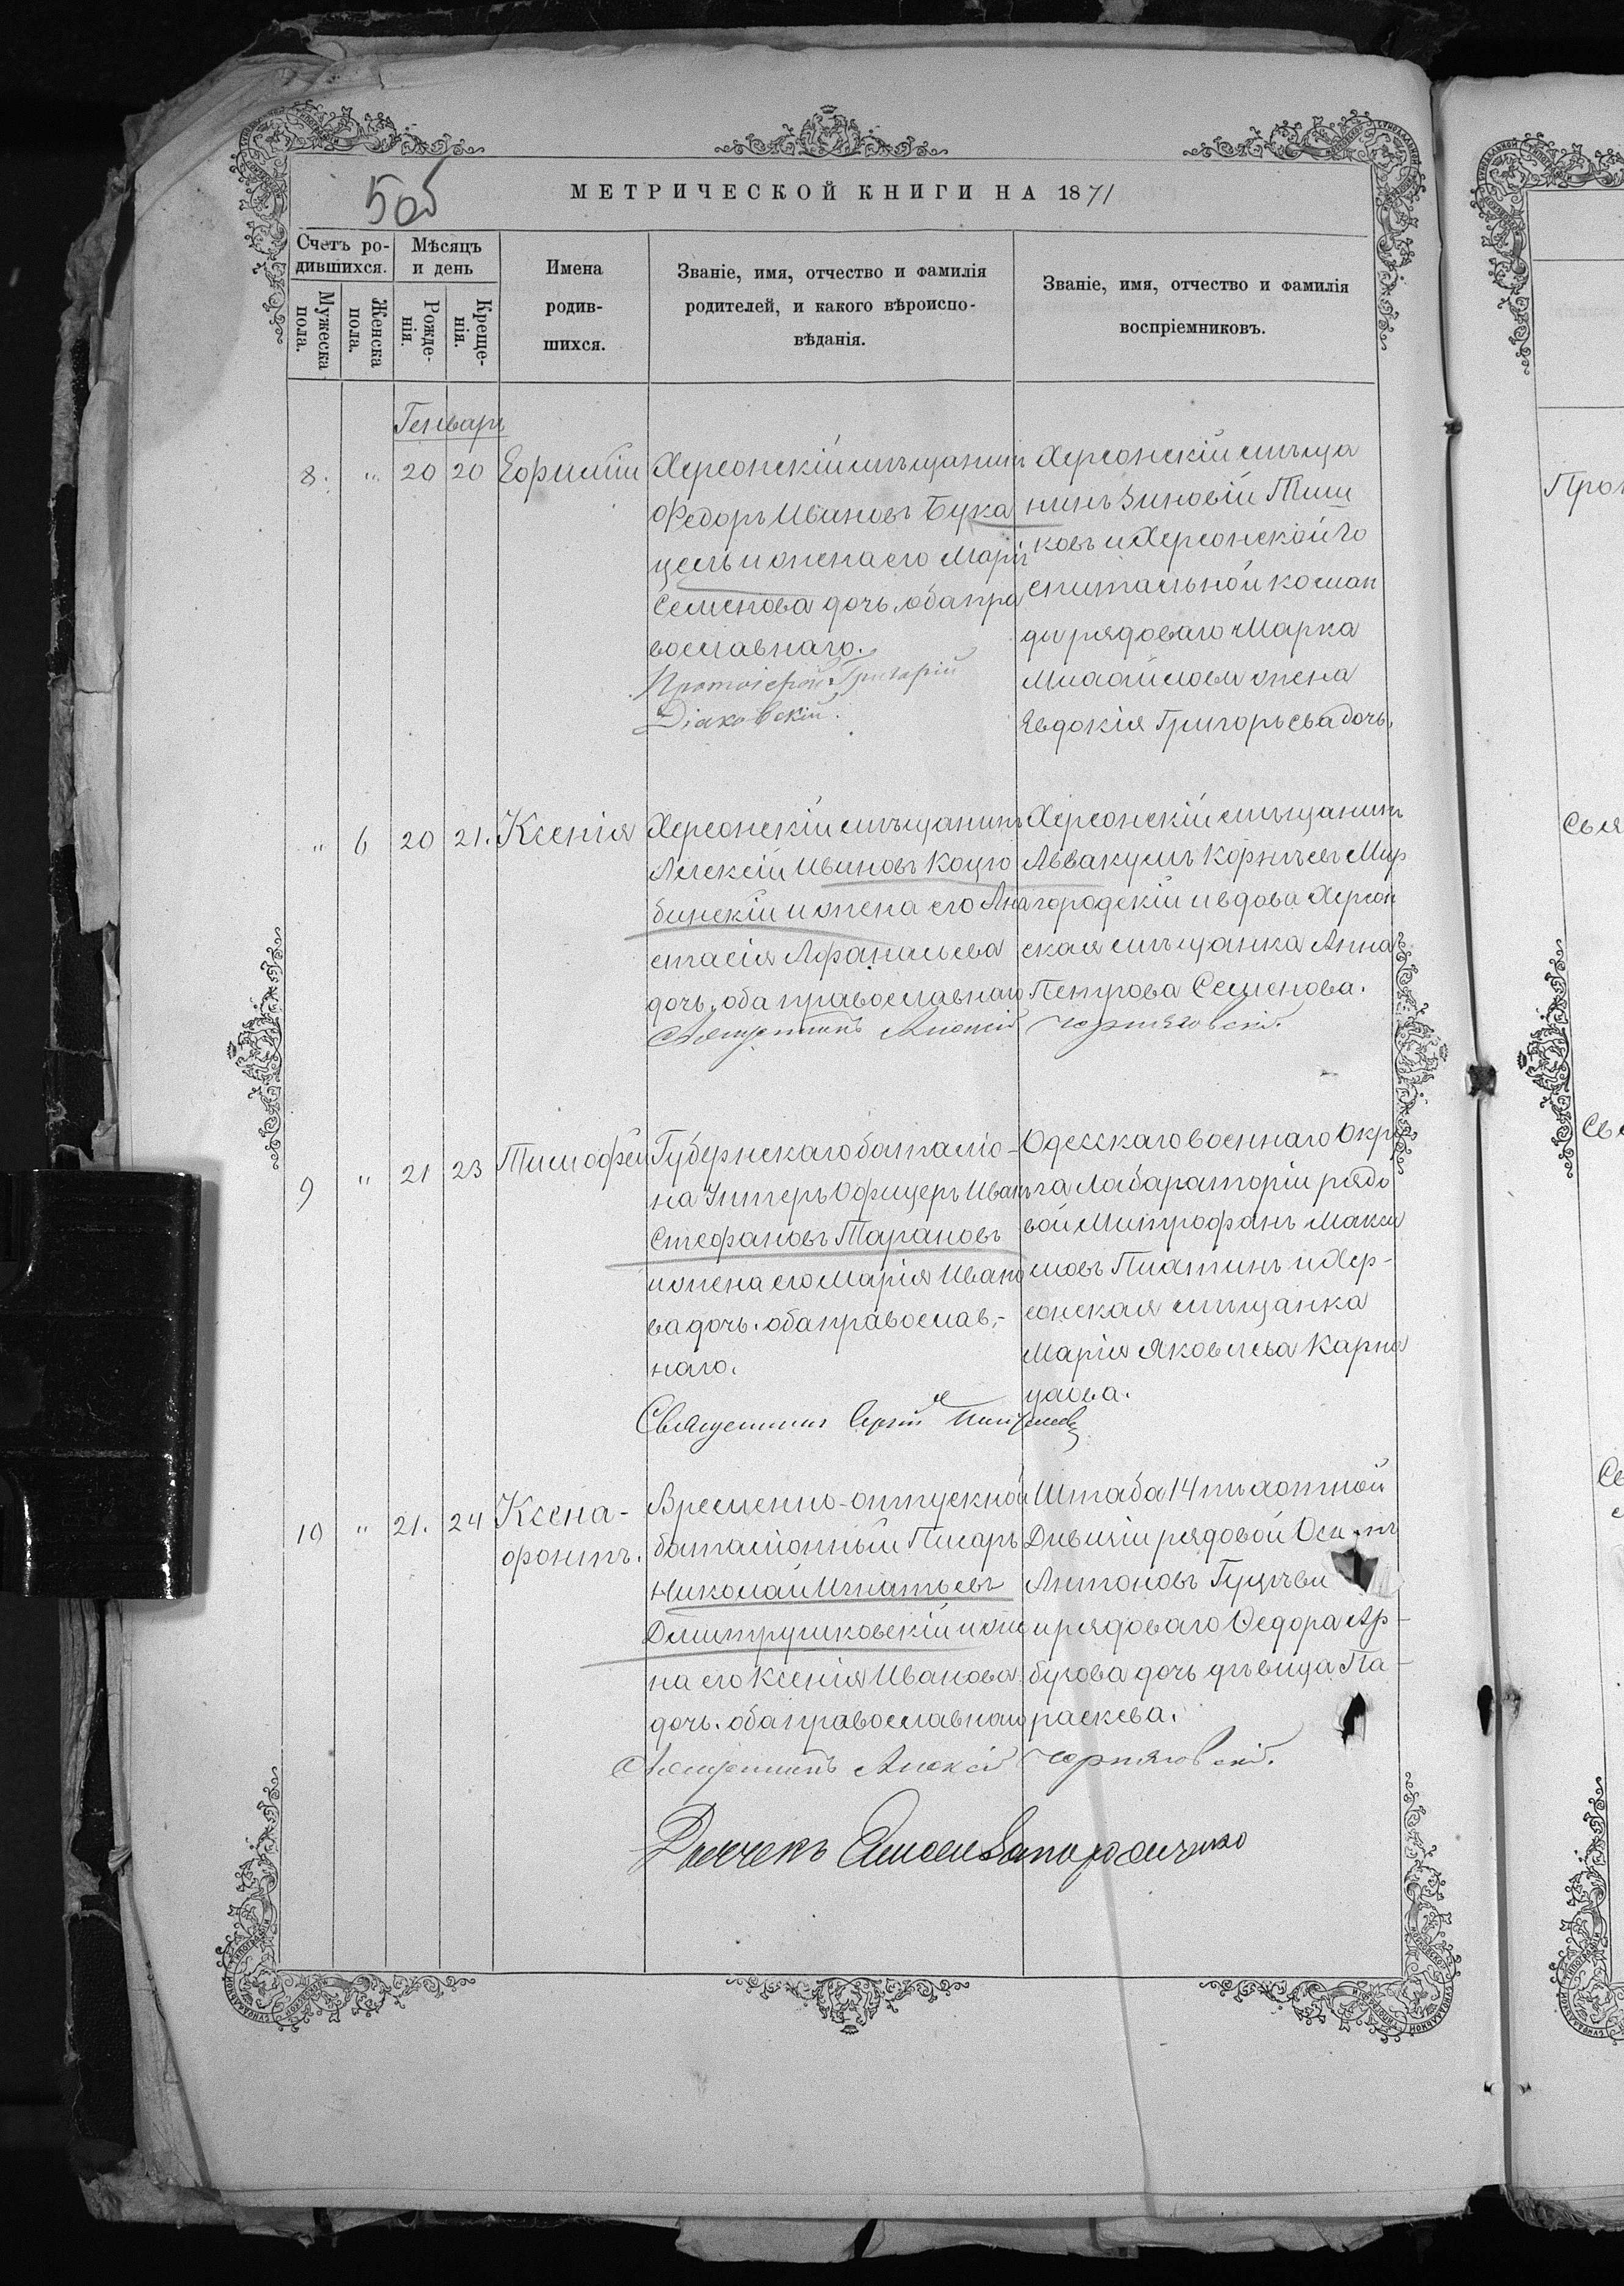 5об
МЕТРИЧЕСКОЙ КНИГИ НА 1871
Счетъ ро-
дившихся.
Мужеска
пола.
Женска
пола.
Мѣсяцъ
и день
Рожде-
нія.
Креще-
нія.
Имена
родив-
шихся.
Званіе, имя, отчество и фамилія
родителей, и какого вѣроиспо-
вѣданія.
Званіе, имя, отчество и фамилія
воспріемниковъ.
Генварь
8. " 20 20 Ефимій
Херсонскій мѣщанинъ
Федоръ Ивановъ Бука
цель и жена его Марія
Семенова дочь, оба пра
вославнаго.
Протоіерей Григорій
Діаковскій.
Херсонскій мѣща
нинъ Зиновій Тим
ковъ и Херсонской го
спитальной коман
ды рядоваго Марка
Михайлова жена
Евдокія Григорьева дочь.
" 6 20 21. Ксенія
Херсонскій мѣщанинъ
Алексій Ивановъ Коцю
бинскій и жена его Ана
стасія Афанасьева
дочь, оба православнаго
Херсонскій мѣщанинъ
Аввакумъ Корнѣевъ Мир
городскій и вдова Херсон
ская мѣщанка Анна
Петрова Семенова.
Священникъ Алексій Чернявскій.
9 " 21 23 Тимофей
Губернскаго баталіо-
на Унтеръ Офицеръ Иванъ
Стефановъ Тарановъ
и жена его Марія Ивано
ва дочь. оба православ-
наго.
Одесскаго военнаго Окру
га Лабараторіи рядо
вой Митрофанъ Макси
мовъ Пиатинъ и Хер-
сонская мѣщанка
Марія Яковлева Карна
ухова.
Священникъ Сергій
10 " 21. 24 Ксено-
фонтъ.
Временно-отпускной
баталіонный Писарь
Николай Игнатьевъ
Димитрушковскій и же
на его Ксенія Иванова
дочь. оба православнаго
Штаба 14 пѣхотной
Дивизіи рядовой Осипъ
Антоновъ
и рядоваго Федора Ар-
бузова дочь дѣвица Па-
раскева.
Священникъ Алексій Чернявскій.
Діаконъ